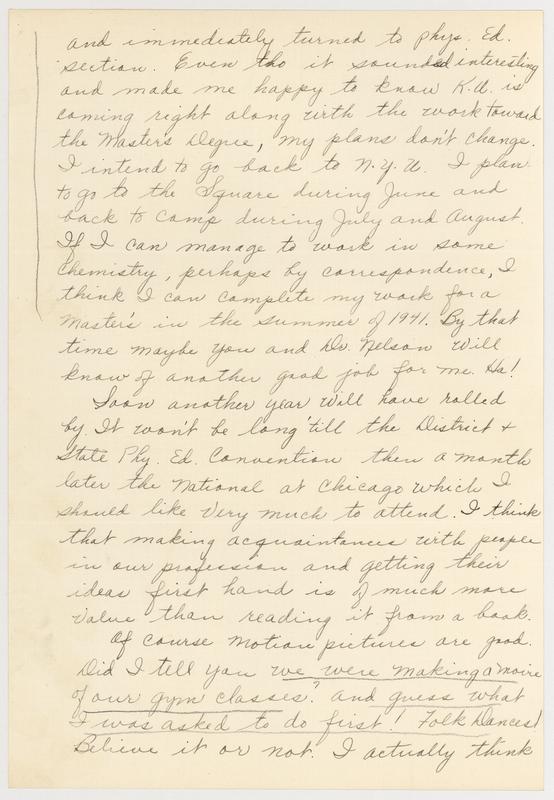 and immediately turned to phys. Ed.
section. Even tho it sounded interesting
and made me happy to know K.U. is
coming right along with the work toward
the Master's Degree, my plans don't change.
I intend to go back to N.Y.U. I plan
to go to the Square during June and
back to camp during July and August.
If I can manage to work in some
Chemistry, perhaps by correspondence, I
think I can complete my work for a
Master's in the summer of 1941. By that
time maybe you and Dr. Nelson will
know of another good job for me. Ha!
Soon another year will have rolled
by. It won't be long 'till the District +
State Phy. Ed. Convention then a month
later the National at Chicago which I
should like very much to attend. I think
that making acquaintances with people
in our profession and getting their
ideas first hand is of much more
value than reading it from a book.
Of course motion pictures are good.
Did I tell you we were making a movie
of our gym classes? and guess what
I was asked to do first! Folk Dances!
Believe it or not. I actually think